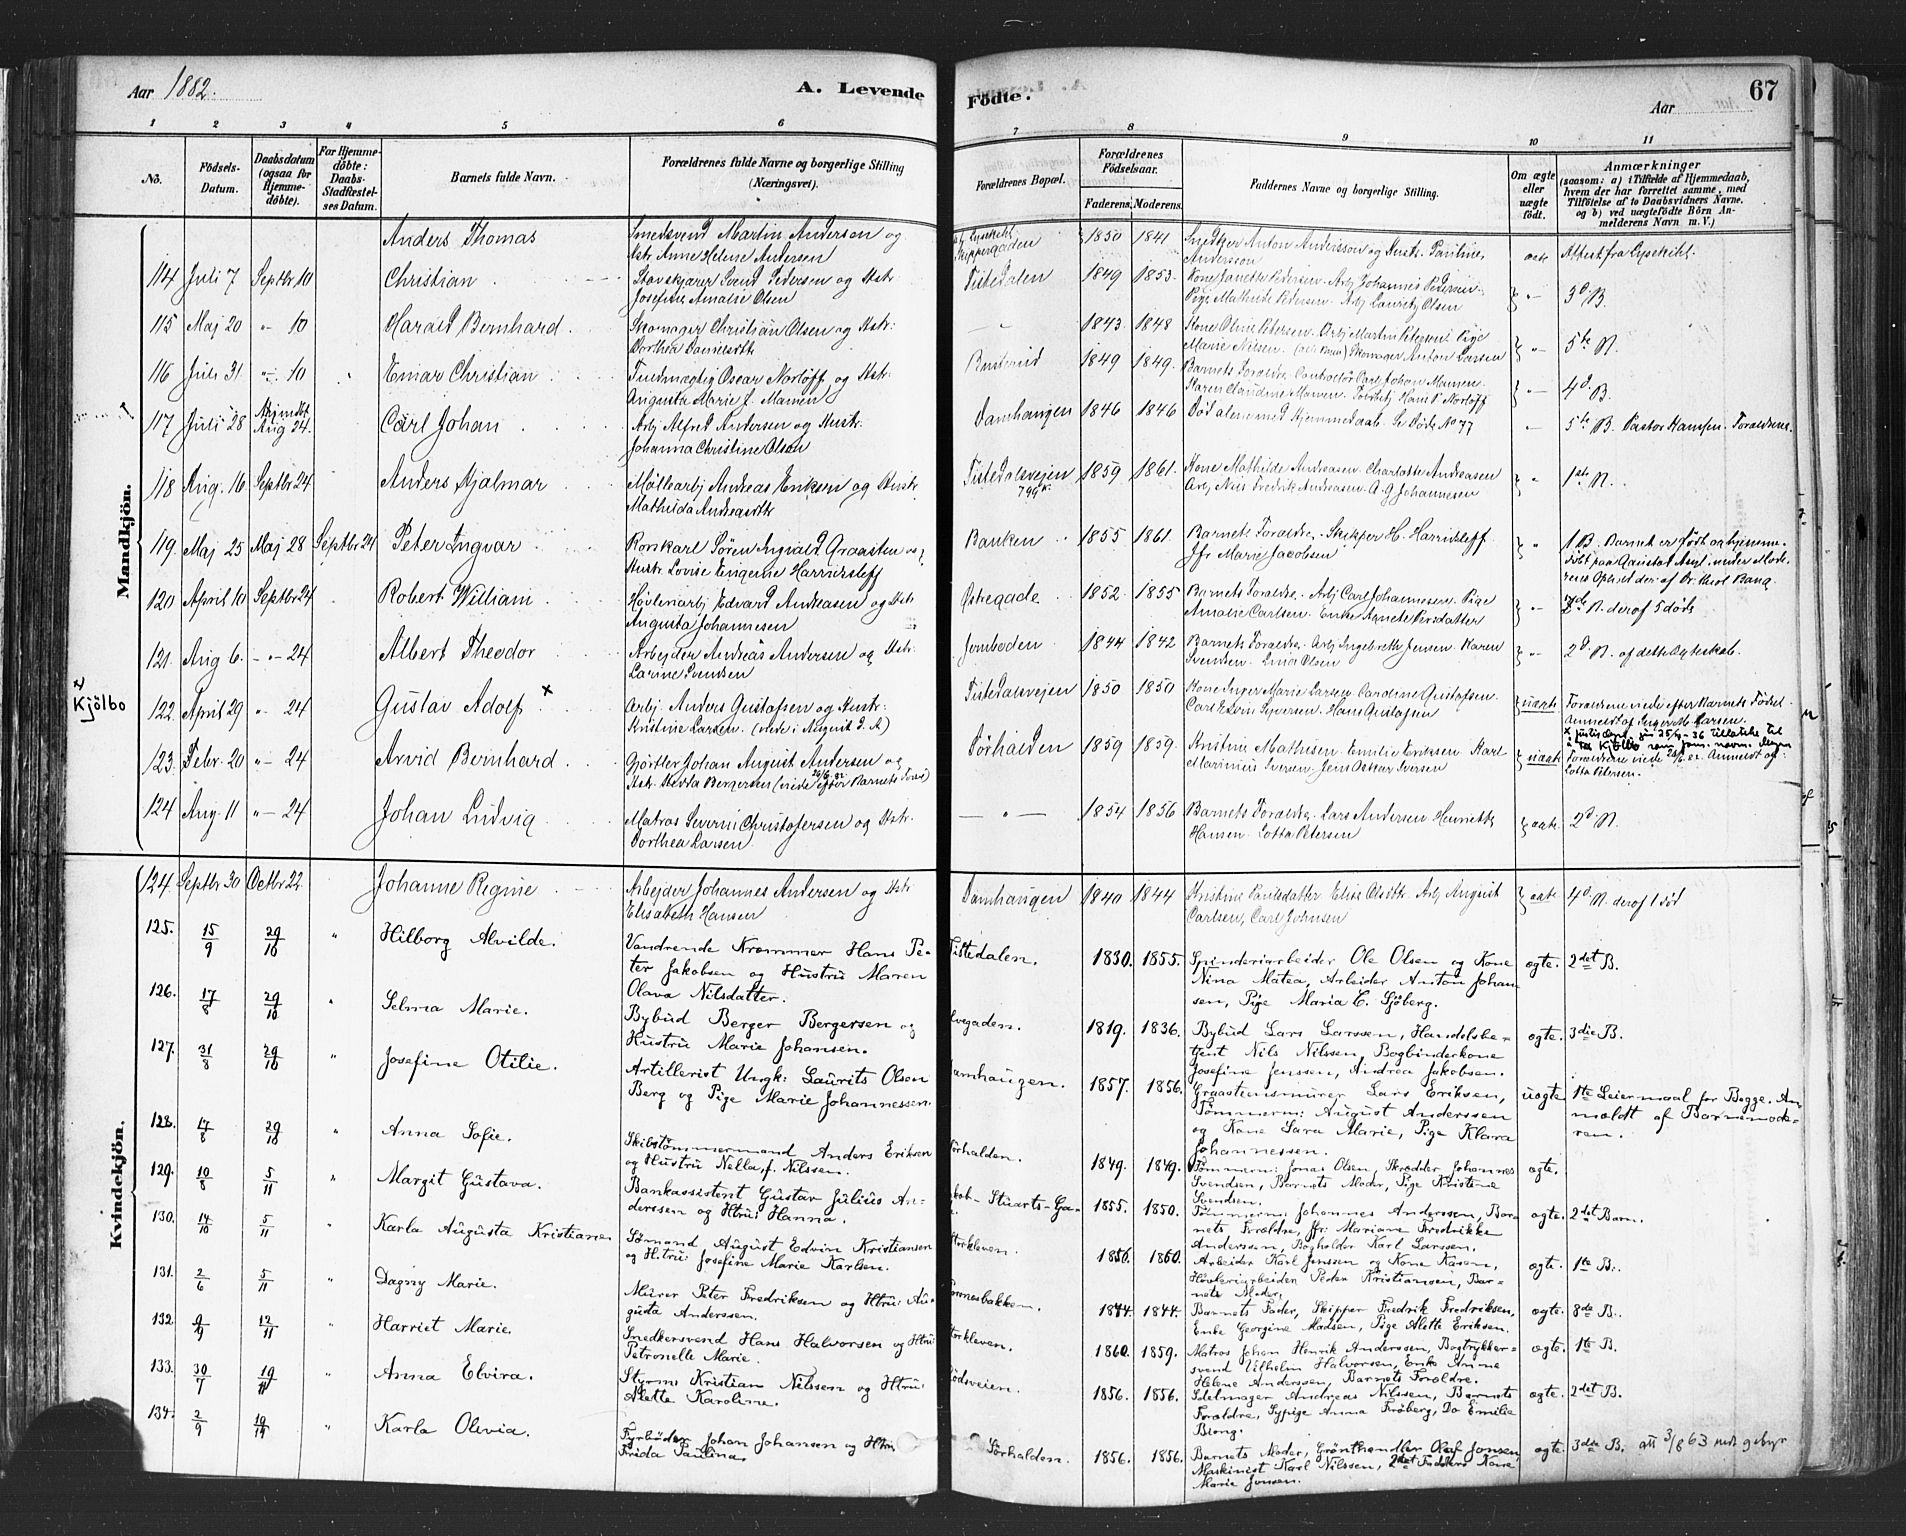 Aar 1882.
A. Levende Födte.
Aar
67
1 2 3 4 5 6 7 8 9 10 11
No.
Födsels-Datum.
Daabsdatum (ogsaa for Hjemmedöbte).
For Hjemmedöbte: Daabs-Stadfæstelses Datum.
Barnets fulde Navn.
Forældrenes fulde Navne og borgerlige Stilling (Næringsvei).
Forældrenes Bopæl.
Forældrenes Födselsaar.
Faderens. Moderens.
Faddernes Navne og borgerlige Stilling.
Om ægte eller uægte födt.
Anmærkninger
(saasom: a) i Tilfælde af Hjemmedaab, hvem der har forrettet samme, med Tilföielse af to Daabsvidners Navne, og b) ved uægtefödte Börn Anmelderens Navn m. V.)
Mandkjön.
Anders Thomas
Smedsvend Martin Anderson og
Hstr. Anne Helene Andersen
Skippergaden
1850 1841
Snedker Anton Andersson og Hustr. Pauline
Andersson
ægte
Attest fra Lysekihl.
114 Juli 7 Septbr 10 Christian
Svend Pedersen og Hstr.
Josefine Amalie Olsen
Tistedalen
1849 1853
Kone Janette Pedersen. Arb. Johannes Pedersen.
Pige Mathilde Pedersen. Arb. Lauritz Olsen
3d B.
115 Maj 20 " 10 Harald Bernhard
Skomager Christian Olsen og Hstr:
Dorthea Danielsdtr
1843 1848
Kone Oline Petersen. Arb Martin Petersen. Pige
Marie Nilsen. Skomager Anton Larsen
5te N.
116 Juli 31 " 10 Einar Christian
Fuldmægtig Oscar Norløff og Hstr.
Augusta Marie f. Mamen
1849 1849
Barnets Forældre. Controllør Carl Johan Mamen.
Karen Claudine Mamen. Hans P. Norløff
4d B.
117 Juli 28 Hjmdbt. Aug 24. Carl Johan
Arb. Alfred Andersen og Hustr.
Johanna Christine Olsen
Damhaugen
1846 1846
Död alene med Hjemmedaab. Se Döde No 77
5te B. Pastor Hansen. Forældrene.
118 Aug. 16 Septbr 24 Anders Hjalmar
Møllearb. Andreas Eriksen og Hustr
Mathilda Andreasdtr
Tistedalsvejen
1859 1861.
Kone Mathilde Andreasen. Charlotte Andreasen
Arb. Nils Fredrik Andreasen. A. G. Johannesen
1ste N.
119. Maj 25 Maj 28 Septbr 24 Peter Ingvar
Rorskarl Sören Ingvald Graasten og
Hustr. Lovise Eugenie Harrideleff
Banken
1855 1861
Barnets Forældre. Skipper H. Harrideleff
Jfr. Marie Jacobsen
1 B. Barnet er Født og hjemme-
døbt paa Gaustad Asyl, under Mode-
rens Ophold der: af Dr. theol Bang.
120 April 10 Septbr 24 Robert William
Høvleriarb Edvard Andreasen og Hstr
Augusta Johannesen
Østregade
1852 1855
Barnets Forældre. Arb Carl Johannessen. Pige
Amalie Carlsen. Enke Agnete Persdatter
N. deraf 5 døde
121. Aug 6. " 24 Albert Theodor
Arbejder Andreas Andersen og Hstr.
Larine Svendsen
Jernboden
1844 1842
Barnets Forældre. Arb Ingebreth Jensen. Karen
Svendsen. Olsen
2d N. af dette Ægteskab.
x Kjölbo
122. April 29 " 24 Gustav Adolf x
Arb. Anders Gustafsen og Hustr:
Kristine Larsen. (viede i August d. A)
Tistedalsvejen
1850 1850
Kone Inger Marie Larsen. Caroline Gustafsen.
Carl Edvin Syversen. Hans Gustafsen
uægte
Forældrene viede efter Barnets Fødsel
Anmeldt af Inger M. Larsen.
x Justisdept. 36 tillatelse til
å ta Kjölbo som fam. navn.
123. Febr. 20 " 24 Arvid Bernhard
Gjørtler Johan August Andersen og
Hstr. Hedda Bergersen (viede efter Barnets Fødsel)
Sørhalden
1859 1859.
Kristine Mathisen. Emilie Eriksen. Karl
Marinius Iversen. Jens Oskar Iversen
uægte
Forældrene viede 82. Anmeldt af
Lotta Petersen.
124 Aug. 11 " 24 Johan Ludvig
Matros Severin Christofersen og Hstr.
Dorthea Larsen
1854 1856
Barnets Forældre. Lars Andersen Henriette
Hansen. Lotta Petersen
ægte
2d N.
Kvindekjön.
124. Septbr 30 Octbr 22 Johanne Regine
Arbejder Johannes Andersen og Hstr
Elisabeth Hansen
Damhaugen
1840 1844
Kristine Paulsdatter Elise Olsdtr. Arb August
Carlsen, Carl Johnsen
ægte
4d N. deraf 1 död
125. 15/9 29/10 " Hilborg Alvilde.
Vandrende Kræmmer Hans Pe-
ter Jakobsen og Hustru Maren
Olava Nilsdatter.
Tistedalen.
1830. 1855.
Spinderiarbeider Ole Olsen og Kone
Nina Matea, Arbeider Anton Johan-
sen, Pige Maria C. Sjöberg.
ægte. 2det B.
126. 17/8 29/10 " Selma Marie.
Bybud Berger Bergersen og
Hustru Marie Johansen.
lvegaden.
1819. 1836.
Bybud Lars Larssen, Handelsbe-
tjent Nils Nilssen, Bogbinderkone
Josefine Jenssen, Andrea Jakobsen.
ægte. 3die B.
127. 31/8 29/10 " Josefine Otilie.
Artillerist Ungk: Laurits Olsen
Berg og Pige Marie Johannessen.
amhaugen.
1857. 1856.
Graastensmurer Lars Eriksen,
Tömmerm: August Anderssen
og Kone Sara Marie, Pige Klara
Johannessen.
uægte
1te Leiermaal for Begge. An-
mældt af Barnemode-
ren.
128. 17/8 29/10 " Anna Sofie.
Skibstömmermand Anders Eriksen
og Hustru Nella, f. Nilssen.
Sörhalden.
1849. 1849.
Tömmerm: Jonas Olsen, Skrædder Johannes
Svendsen, Barnets Moder, Pige Kristine
Svendsen.
ægte.
129. 10/8 5/11 " Margit Gustava.
Bankassistent Gustav Julius An-
derssen og Htru: Hanna.
kob Stuarts-Ga-
1855. 1850.
Tömmerm: Johannes Anderssen, Bar-
nets Forældre, Jfr: Mariane Fredrikke
Anderssen, Bogholder Karl Larssen.
ægte. 2det Barn.
130. 14/10 5/11 " Karla Augusta Kristiane
Sömand August Edvin Kristiansen
og Htru: Josefine Marie Karlsen.
Storkleven.
1856. 1860.
Arbeider Karl Jenssen og Kone Kasen,
Høvleriarbeider Peder Kristiansen, Bar-
nets Moder.
ægte. 1te B.
131. 2/6 5/11 " Dagny Marie.
Murer Peter Fredriksen og Htru: Au-
gusta Anderssen.
nnesbakken.
1844. 1844.
Barnets Fader, Skipper Fredrik Fredriksen,
Enke Georgine Madsen, Pige Alette Eriksen.
ægte. 8de B.
132. 9/9 12/11 " Harriet Marie.
Snedkersvend Hans Halvorsen og Htru:
Petronelle Marie.
Storkleven.
1860. 1859.
Matros Johan Henrik Anderssen, Bogtrykker-
svend Vilhelm Halvorsen, Enke Anne
Helene Anderssen, Barnets Forældre.
ægte. 1te B.
133. 30/7 19/11 " Anna Elvira.
Styrm: Kristian Nilssen og Htru:
Alette Karoline.
ödsveien.
1856. 1856.
Seilmager Andreas Nilssen, Barnets
Forældre, Sypige Anna Fröberg, Do Emilie
Biong.
ægte. 2det B.
134. 2/9 19/11 " Karla Olevia.
Fyrböder Johan Johansen og Htru:
Frida Paulina.
Sörhalden.
1856. 1856.
Barnets Moder, Grönthandler Olaf Jonsen,
Maskinist Karl Nilssen, Kone
Marie Jonsen.
ægte. 3die B. att 3/8 63 mot gebyr